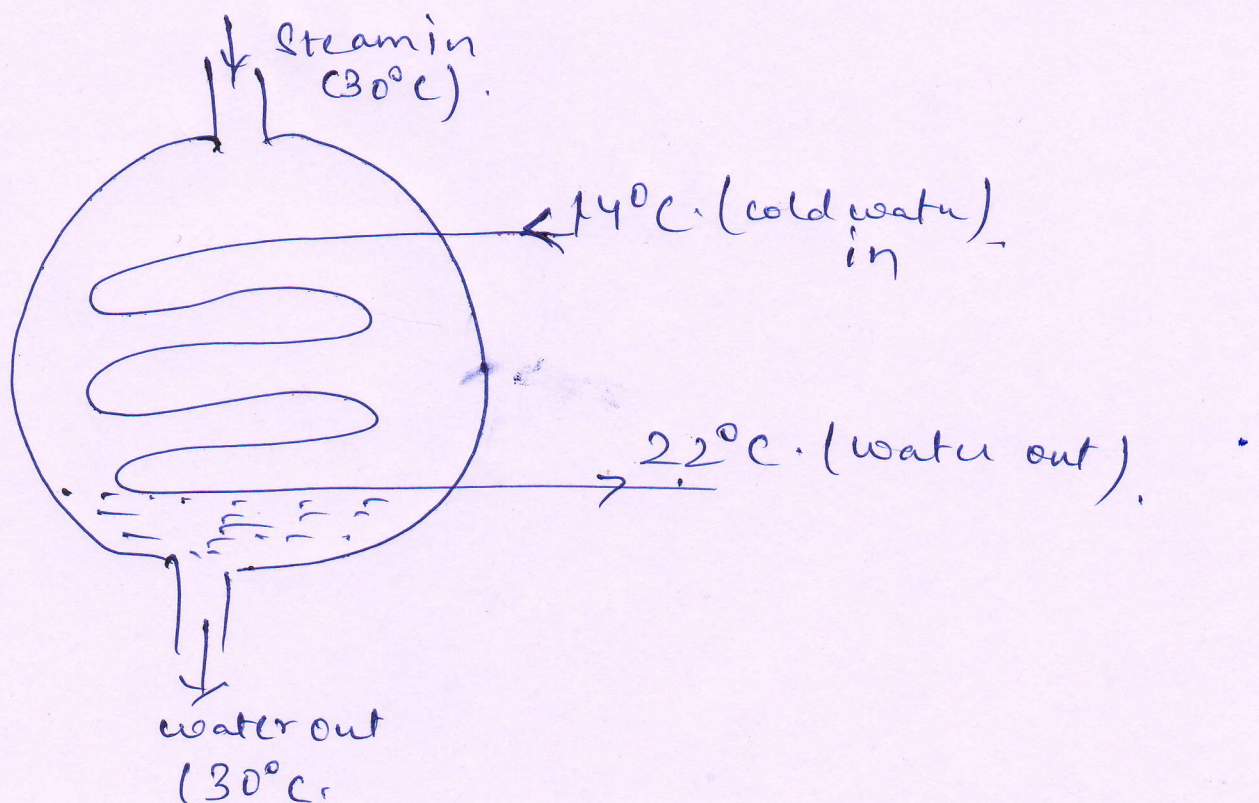 Steam in
(30°C).
14°C. (cold water)
in
22°C. (water out).
water out
(30°C.